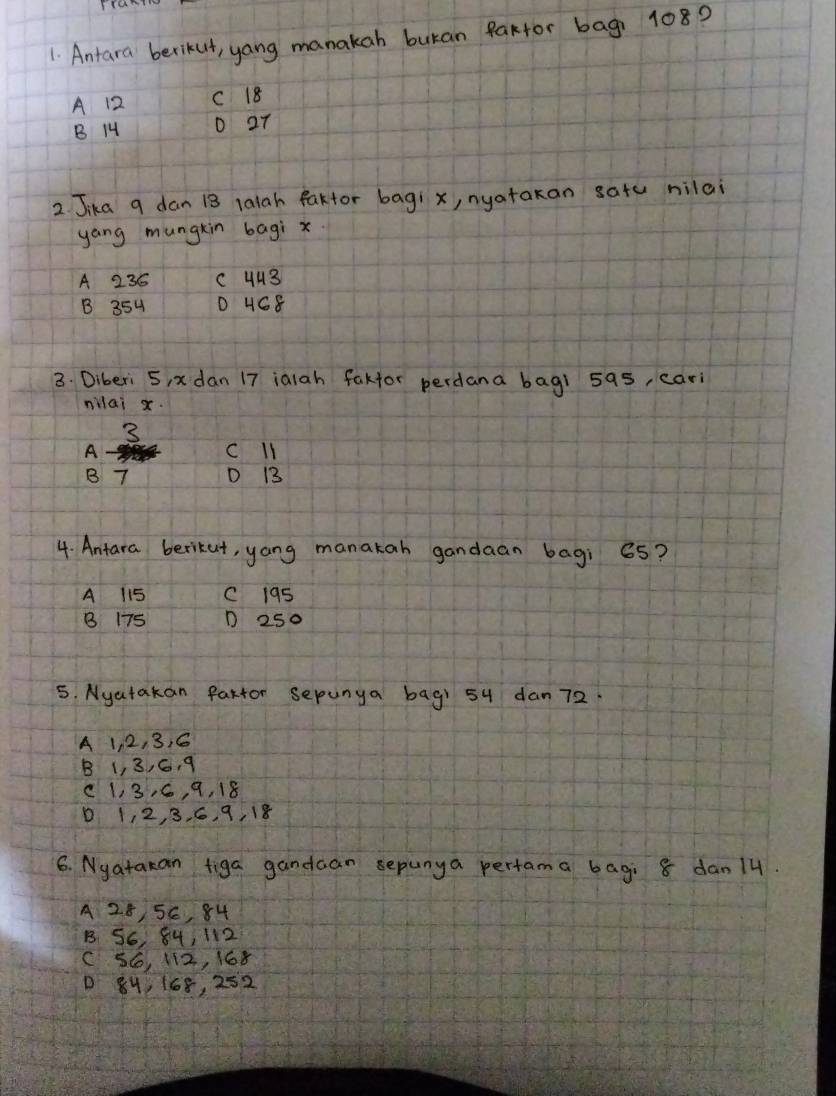 1. Antara berikut, yang manakah bukan faktor bagi 108?
A 12 C 18
B 14 D 27
2. Jika 9 dan 13 ialah faktor bagi x, nyatakan satu nilai
yang mungkin bagi x.
A 236 C 443
B 354 D 468
3. Diberi 5, x dan 17 ialah faktor perdana bagi 595, cari
nilai x.
A 3 C 11
B 7 D 13
4. Antara berikut, yang manakah gandaan bagi 65?
A 115 C 195
B 175 D 250
5. Nyatakan faktor sepunya bagi 54 dan 72.
A 1, 2, 3, 6
B 1, 3, 6, 9
C 1, 3, 6, 9, 18
D 1, 2, 3, 6, 9, 18
6. Nyatakan tiga gandaan sepunya pertama bagi 8 dan 14.
A 28, 56, 84
B 56, 84, 112
C 56, 112, 168
D 84, 168, 252